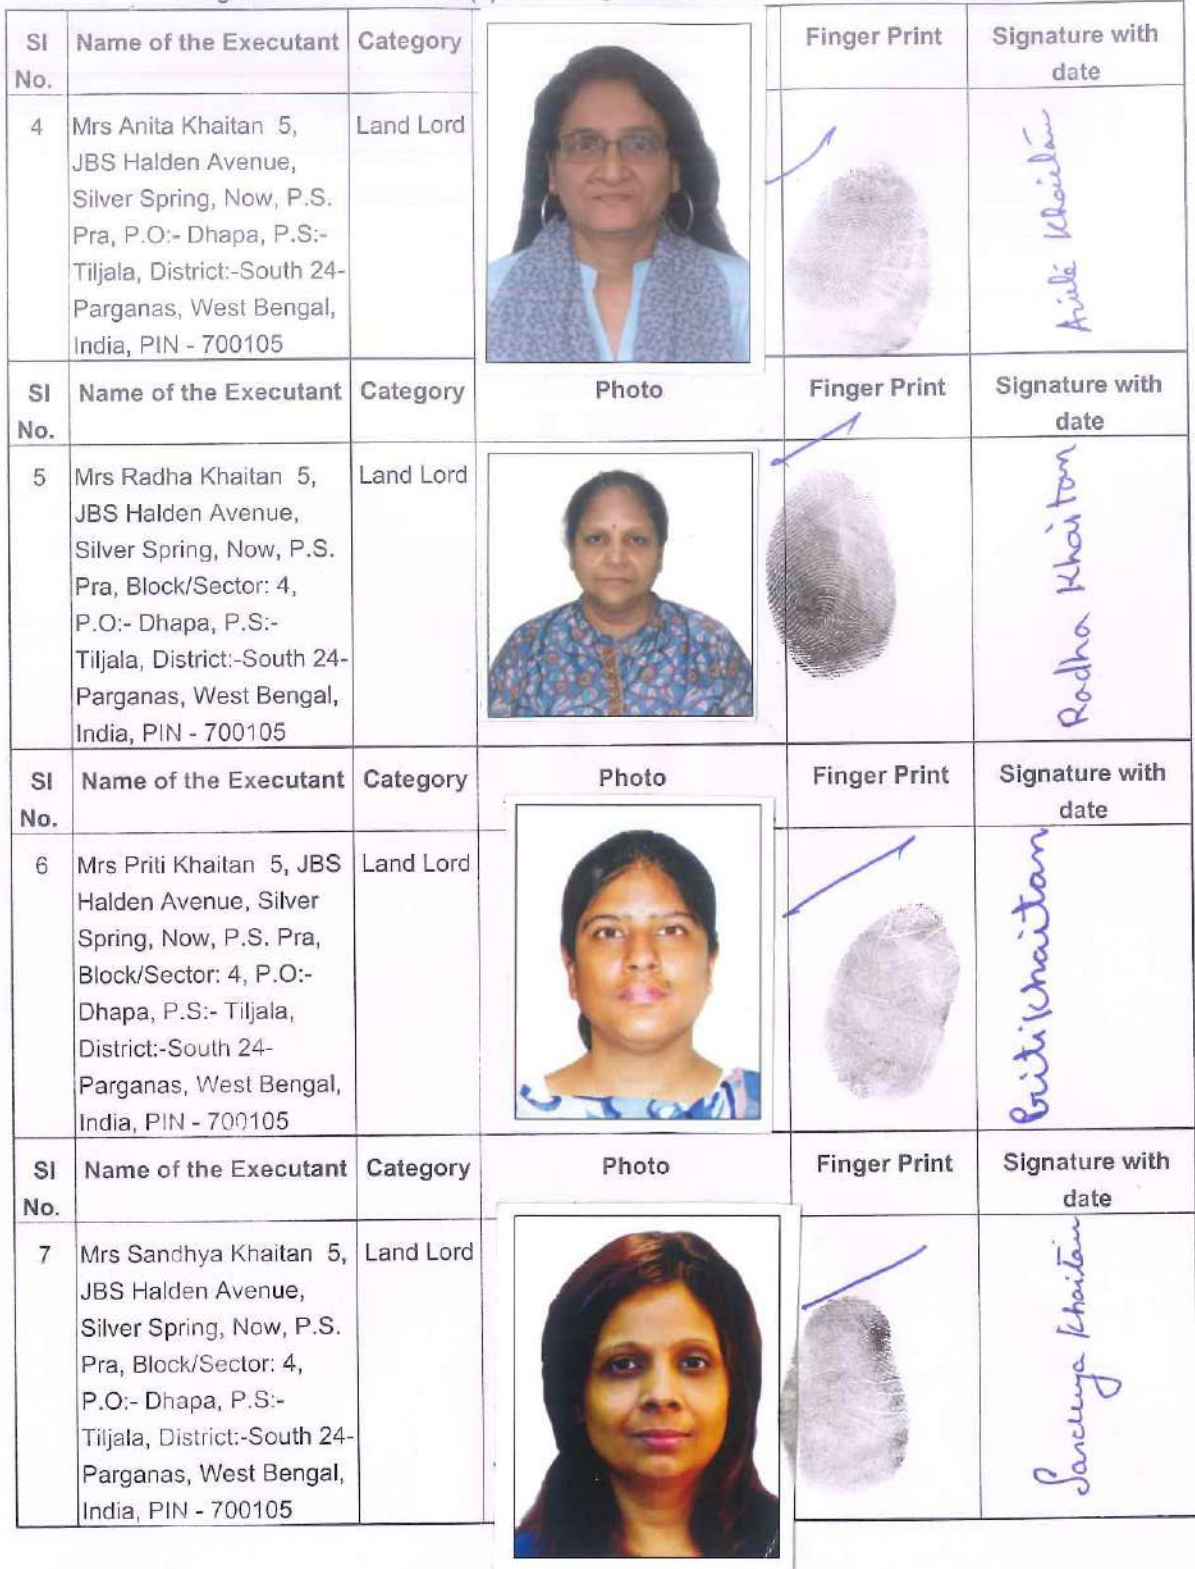 SI No. Name of the Executant Category Finger Print Signature with date
4 Mrs Anita Khaitan 5, Land Lord
JBS Halden Avenue,
Silver Spring, Now, P.S.
Pra, P.O:- Dhapa, P.S:-
Tiljala, District:-South 24-
Parganas, West Bengal,
India, PIN - 700105
Khaitan
SI No. Name of the Executant Category Photo Finger Print Signature with date
5 Mrs Radha Khaitan 5, Land Lord
JBS Halden Avenue,
Silver Spring, Now, P.S.
Pra, Block/Sector: 4,
P.O:- Dhapa, P.S:-
Tiljala, District:-South 24-
Parganas, West Bengal,
India, PIN - 700105
Radha Khaitan
SI No. Name of the Executant Category Photo Finger Print Signature with date
6 Mrs Priti Khaitan 5, JBS Land Lord
Halden Avenue, Silver
Spring, Now, P.S. Pra,
Block/Sector: 4, P.O:-
Dhapa, P.S:- Tiljala,
District:-South 24-
Parganas, West Bengal,
India, PIN - 700105
Priti Khaitan
SI No. Name of the Executant Category Photo Finger Print Signature with date
7 Mrs Sandhya Khaitan 5, Land Lord
JBS Halden Avenue,
Silver Spring, Now, P.S.
Pra, Block/Sector: 4,
P.O:- Dhapa, P.S:-
Tiljala, District:-South 24-
Parganas, West Bengal,
India, PIN - 700105
Sandhya Khaitan